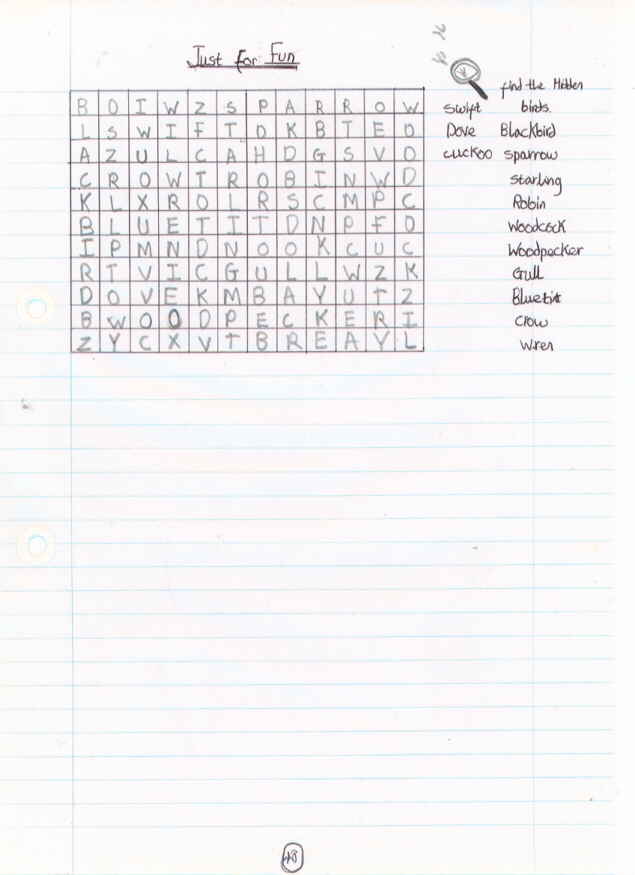 Just for Fun
find the Hidden
birds.
Swift
Dove Blackbird
cuckoo sparrow
starling
Robin
Woodcock
Woodpecker
Gull
Bluetit
crow
wren
B O I W Z S P A R R O W
L S W I F T D K B T E O
A Z U L C A H D G S V O
C R O W T R O B I N W D
K L X R O L R S C M P C
B L U E T I T D N P F O
I P M N D N O O K C U C
R T V I C G U L L W Z K
D O V E K M B A Y U T Z
B W O O D P E C K E R I
Z Y C X V T B R E A Y L
48